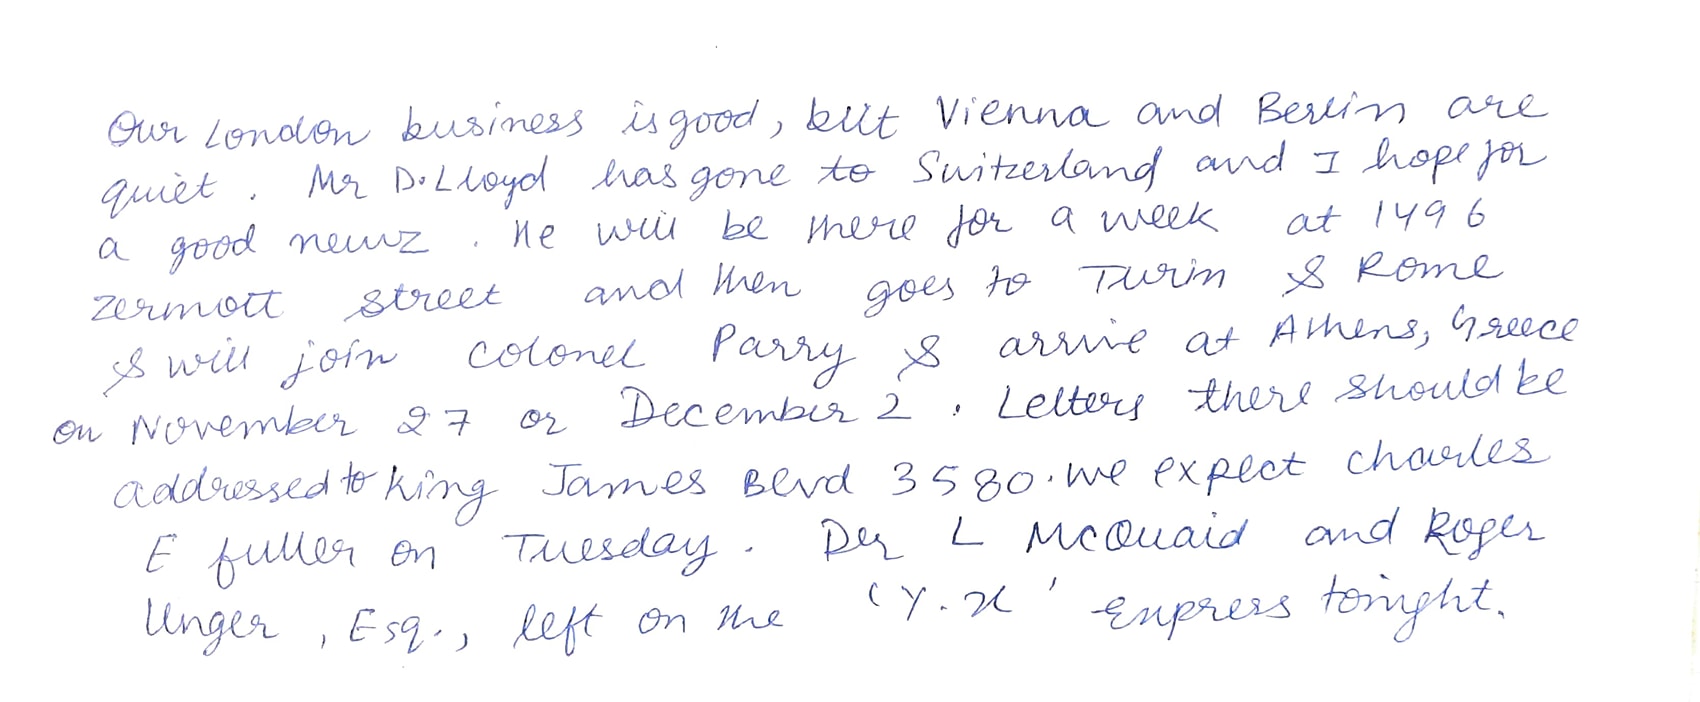 Our London business is good, but Vienna and Berlin are
quiet. Mr D. Lloyd has gone to Switzerland and I hope for
a good newz. He will be there for a week at 1496
zermott street and then goes to Turin & Rome
& will join colonel Parry & arrive at Athens, Greece
on November 27 or December 2. Letters there should be
addressed to king James Blvd 3580. we expect charles
E fuller on Tuesday. Der L McQuaid and Roger
Unger, Esq., left on the 'Y.X' Express tonight.